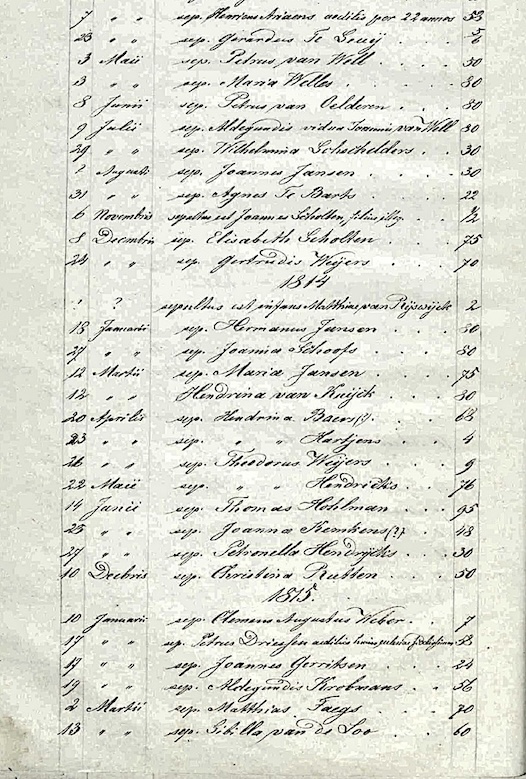 7 " " sep. Henricus Ariaens aedilis per 22 annos 53
23 " " sep. Gerardus Te Leuij
3 Maii sep. Petrus van Well . . . 50
3 " " sep. Maria Welles . . . 80
8 Junii sep. Petrus van Oelderen . . . 80
9 Julii sep. Aldegundis vidua Joannis van Well 30
29 " " sep. Wilhelmina Schechelders . . 30
? Augusti sep. Joannes Jansen . . . 30
31 " " sep. Agnes Te Barts . . . 22
6 Novembris sepultus est Joannes Scholten, filius illeg. ½
8 Decmbris sep. Elisabeth Scholten . . . 75
24 " " sep. Gertrudis Weijers . . . 70
1814
? ? sepultus est infans Matthiae van Rijswijck 2
18 Januarii sep. Hermanus Jansen . . . 80
27 " " sep. Joanna Schoofs . . . 80
12 Martii sep. Maria Jansen . . . 75
12 " " Hendrina van Kuijck . . . 80
20 Aprilis sep. Hendrina Baers(?) . . . 68
23 " " sep. " " Hartjens . . . 4
26 " " sep. Theodorus Weijers . . . 9
22 Maii sep. " " Hendricks . . . 76
14 Junii sep. Thomas Hohlman . . . 95
23 " " sep. Joanna Kemkens(?) . . 48
27 " " sep. Petronella Hendrijcks . . . 30
10 Decbris sep. Christina Rutten . . . 50
1815.
10 Januarii sep. Clemens Augustus Weber . . 7
17 " " sep. Petrus Driessen aedilis
17 " " sep. Joannes Gerritsen . . . 24
19 " " sep. Aldegundis Krebmans . . 56
2 Martii sep. Matthias Faegs . . . 70
13 " " sep. Sibilla van de Loo . . . 60